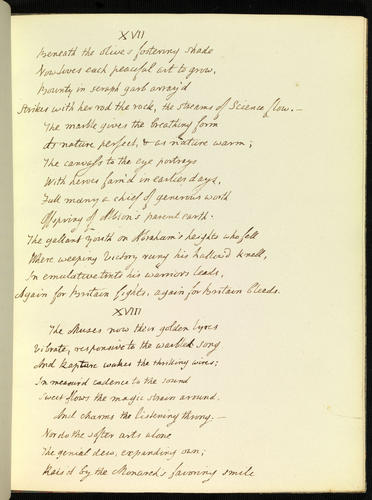 XVII
Beneath the olive's fostering shade
Now lives each peaceful art to grow,
Bounty in seraph garb array'd
Strikes with her rod the rock, the streams of Science flow. —
The marble gives the breathing form
As nature perfect, & as nature warm;
The canvass to the eye portrays
With heroes fam'd in earlier days,
Full many a chief of generous worth
Offspring of Albion's parent earth.
The gallant youth on Abraham's heights who fell
Where weeping Victory rung his hallow'd knell,
In emulative tints his warriors leads,
Again for Britain fights, again for Britain bleeds.
XVIII
The Muses now their golden lyres
Vibrate, responsive to the warbled song
And Rapture wakes the thrilling wires;
In measur'd cadence to the sound
Sweet flows the magic strain around.
And charms the listening throng. —
Nor do the softer arts alone
The genial dew, expanding own;
Rais'd by the Monarch's favoring smile